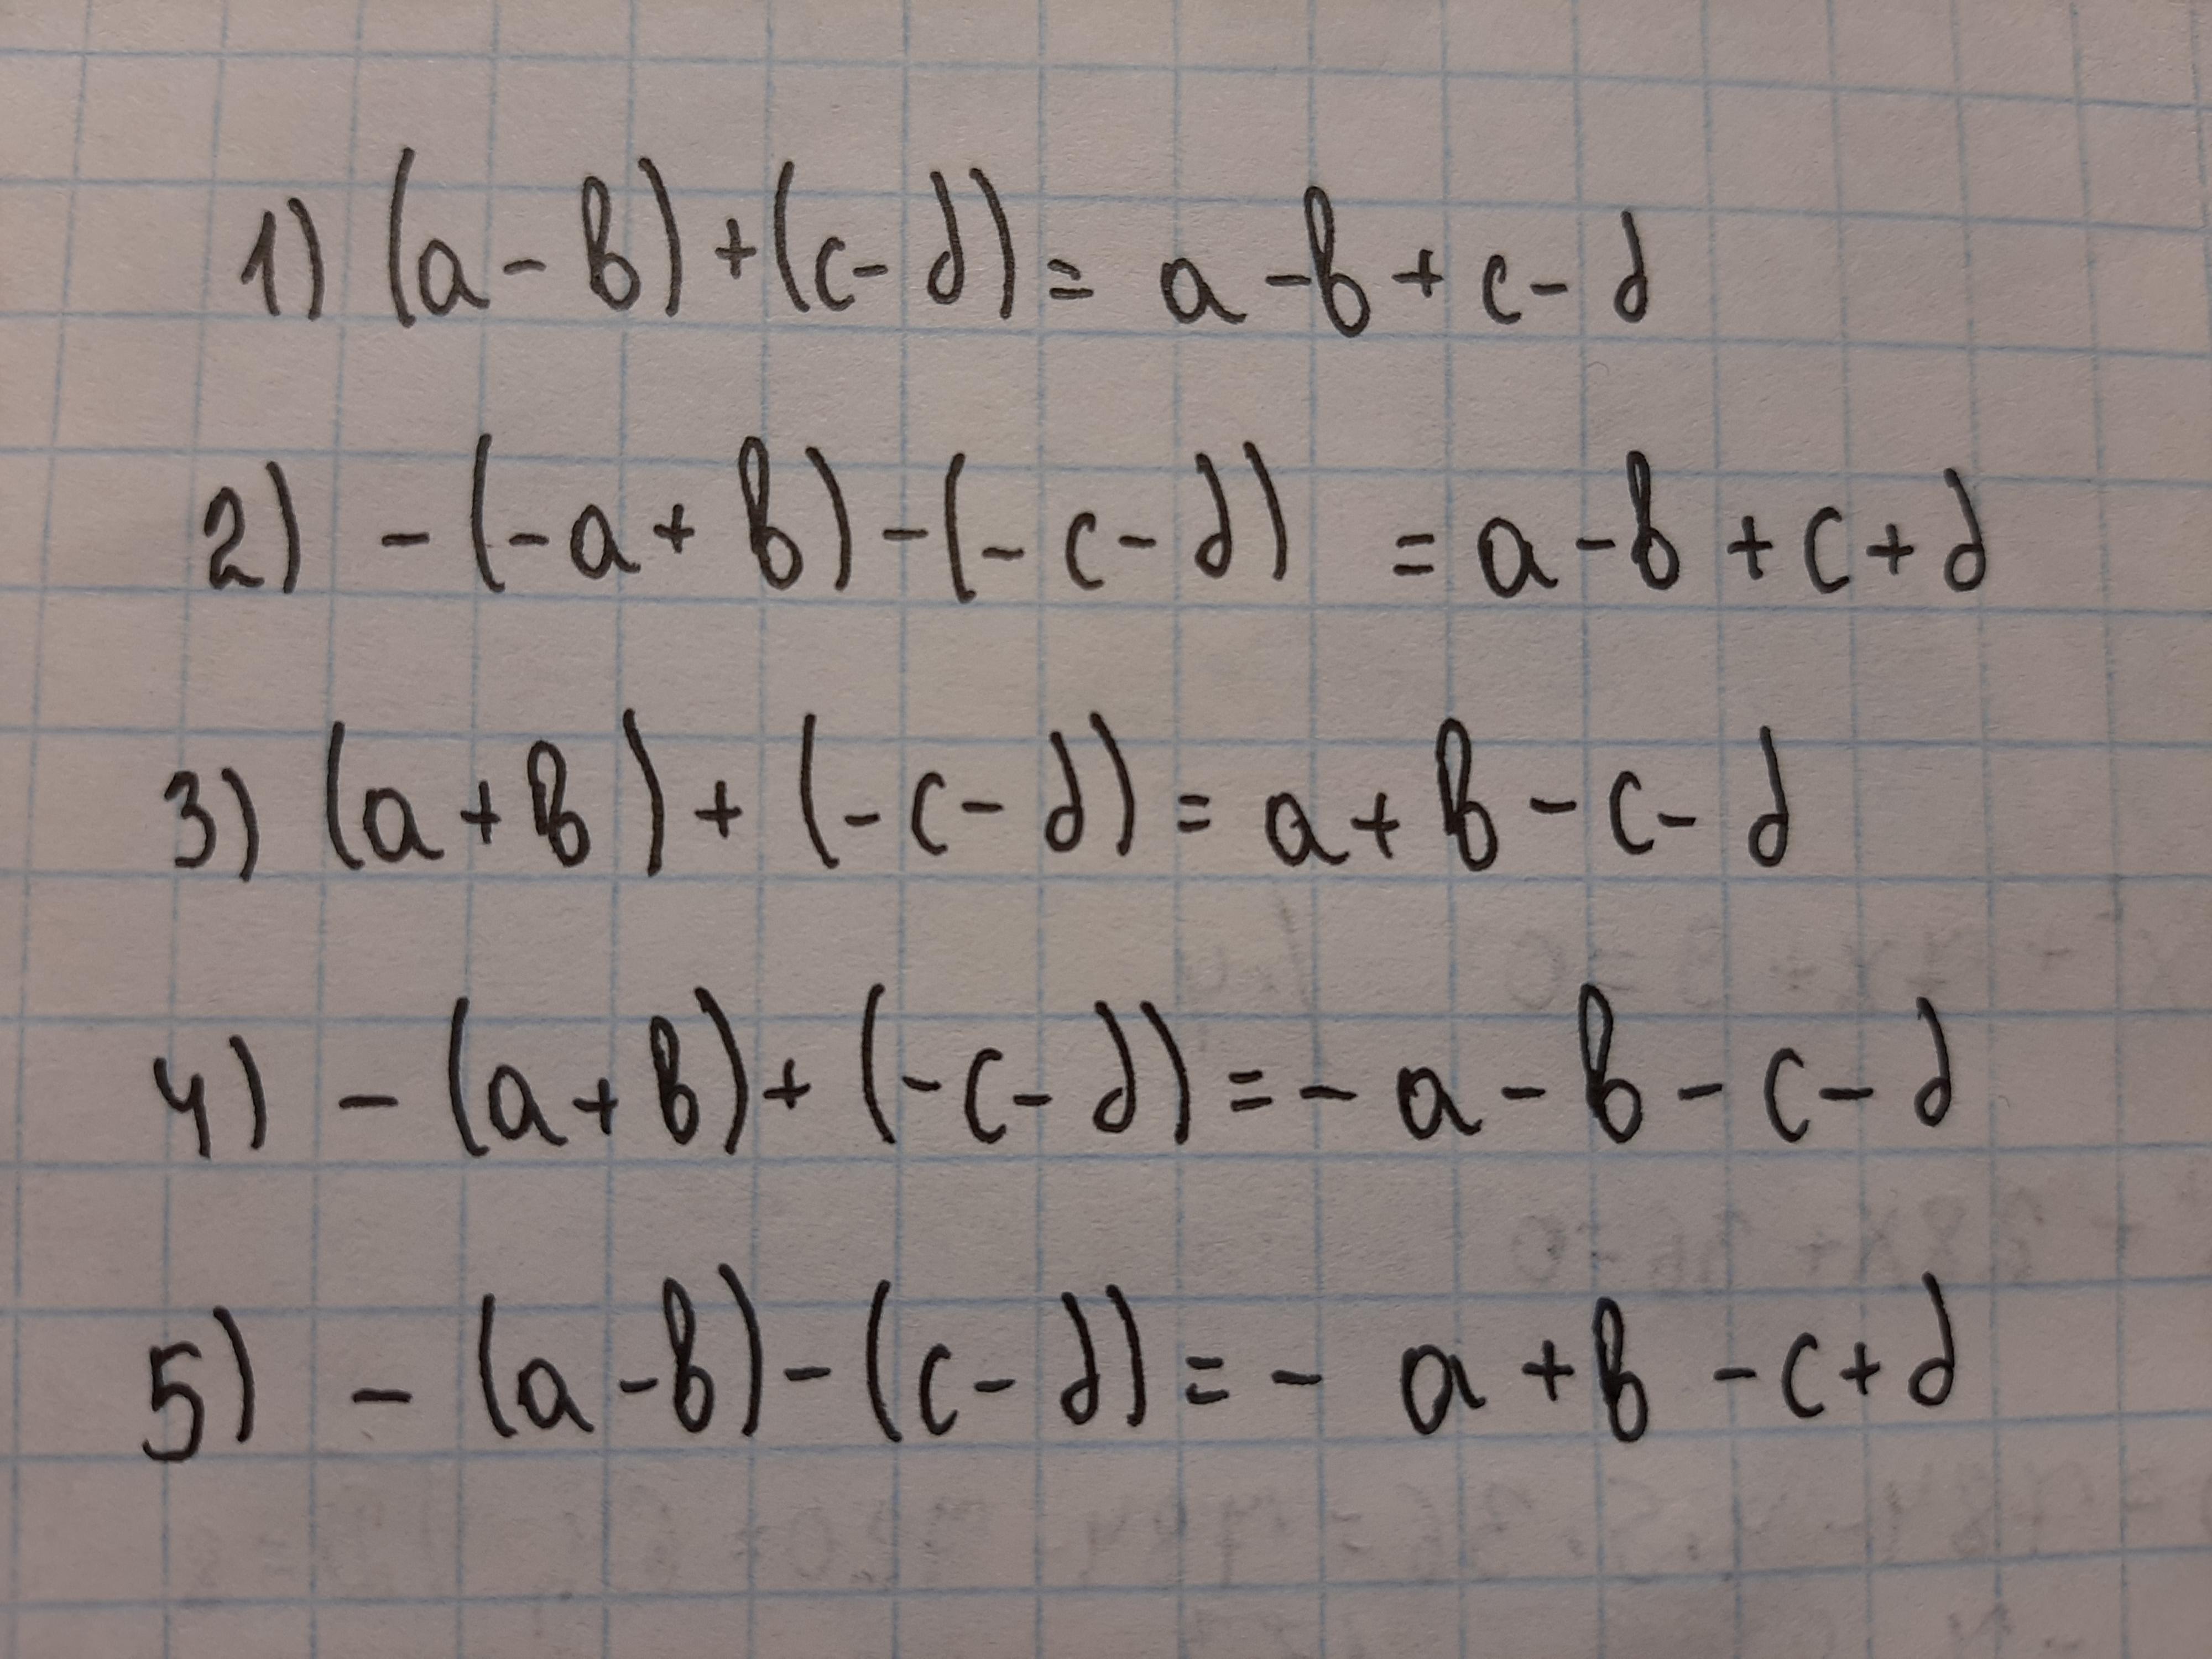 1) (a - b) + (c - d) = a - b + c - d
2) - (- a + b) - (- c - d) = a - b + c + d
3) (a + b) + (- c - d) = a + b - c - d
4) - (a + b) + (- c - d) = - a - b - c - d
5) - (a - b) - (c - d) = - a + b - c + d